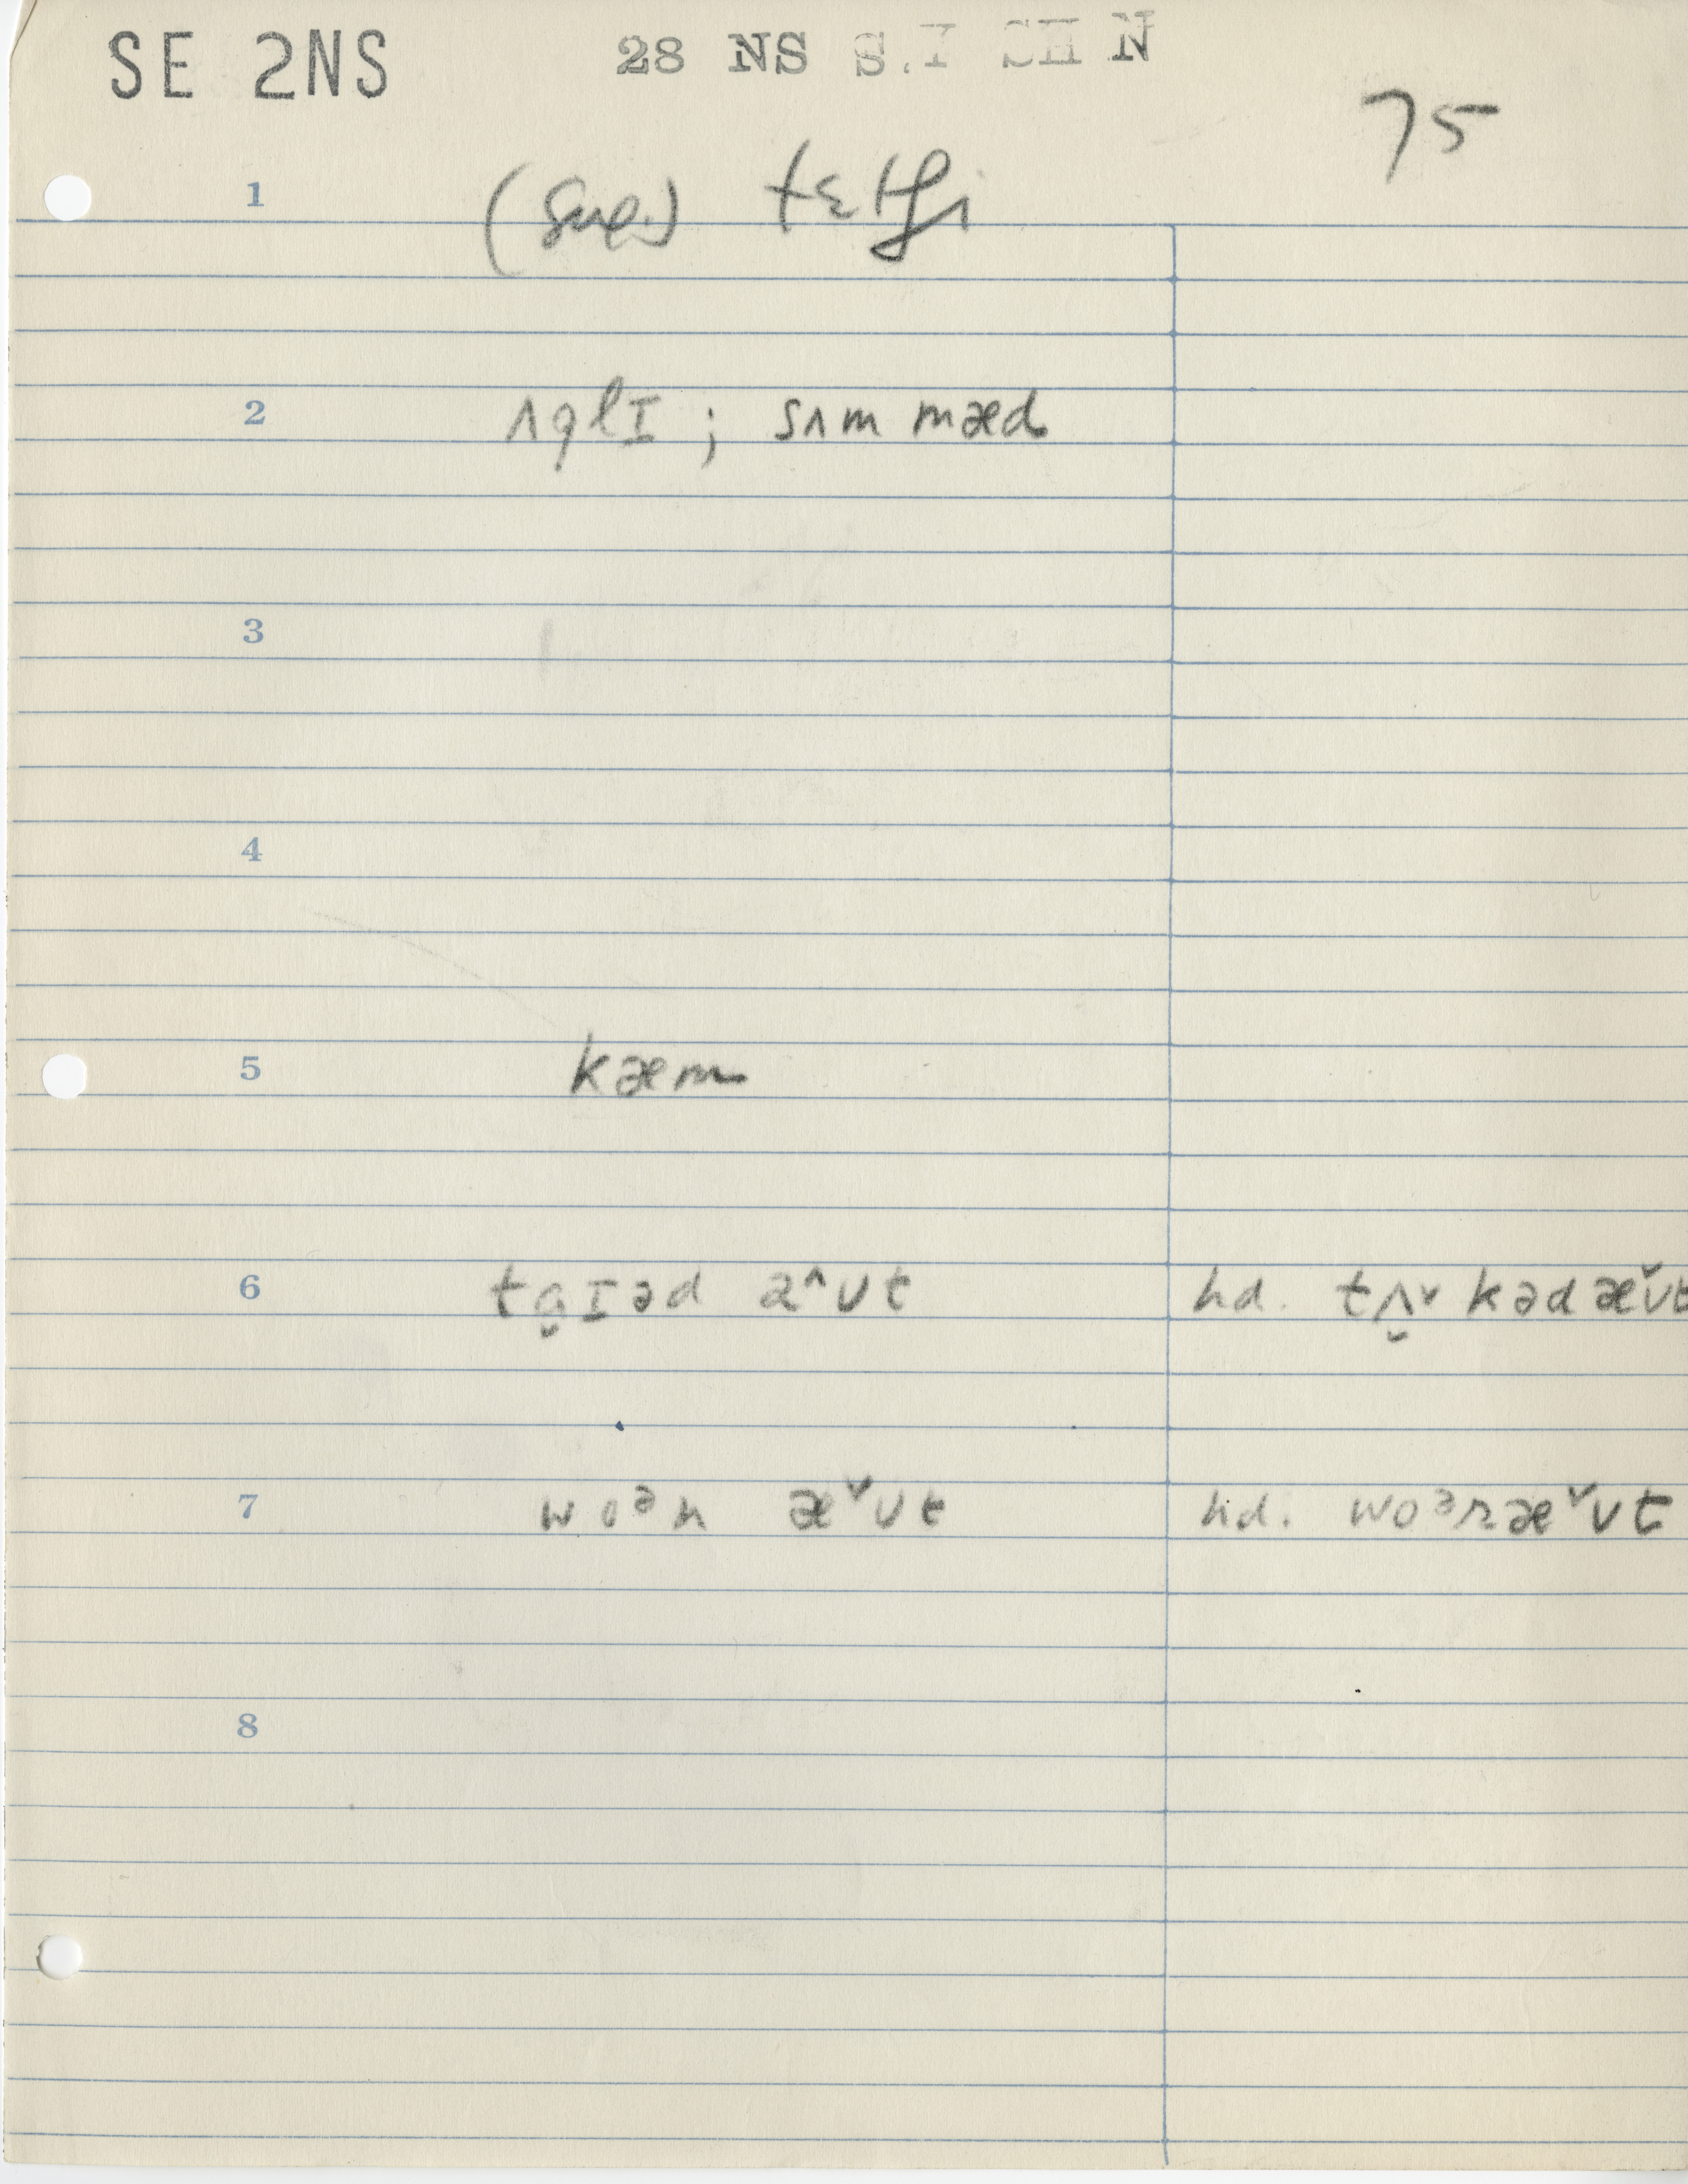 SE 2NS 28 NS S.I SH N
75
1 (sug.) tɛtʃi
2 ʌglI ; sʌm mæd
3
4
5 kæm
6 tɑ̬Iəd a^ʊt hd. tʌ̬ˇkədæˇʊt
7 woᵊn æˇʊt hd. woᵊræˇʊt
8